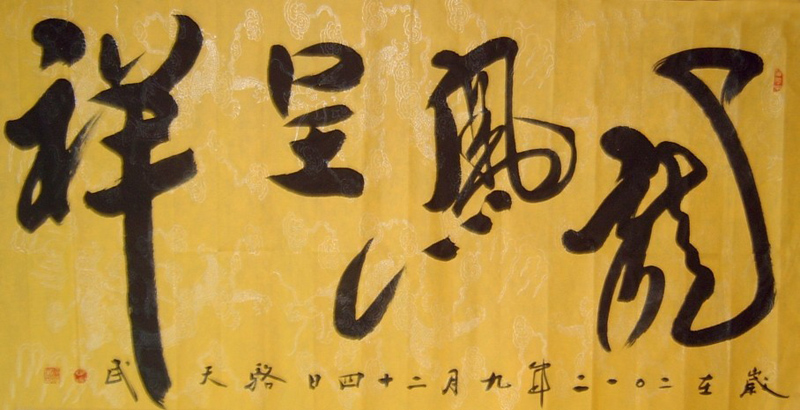 龍鳳呈祥
歲在二〇一二年九月二十四日 駱天武